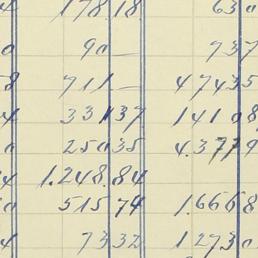 4 178 18 630
0 90 — 737
8 711 — 47435
4 331 37 141 08
0 250 35 4.3779
4 1.248 84
0 515 74 1.6668
4 73 32 1 2730